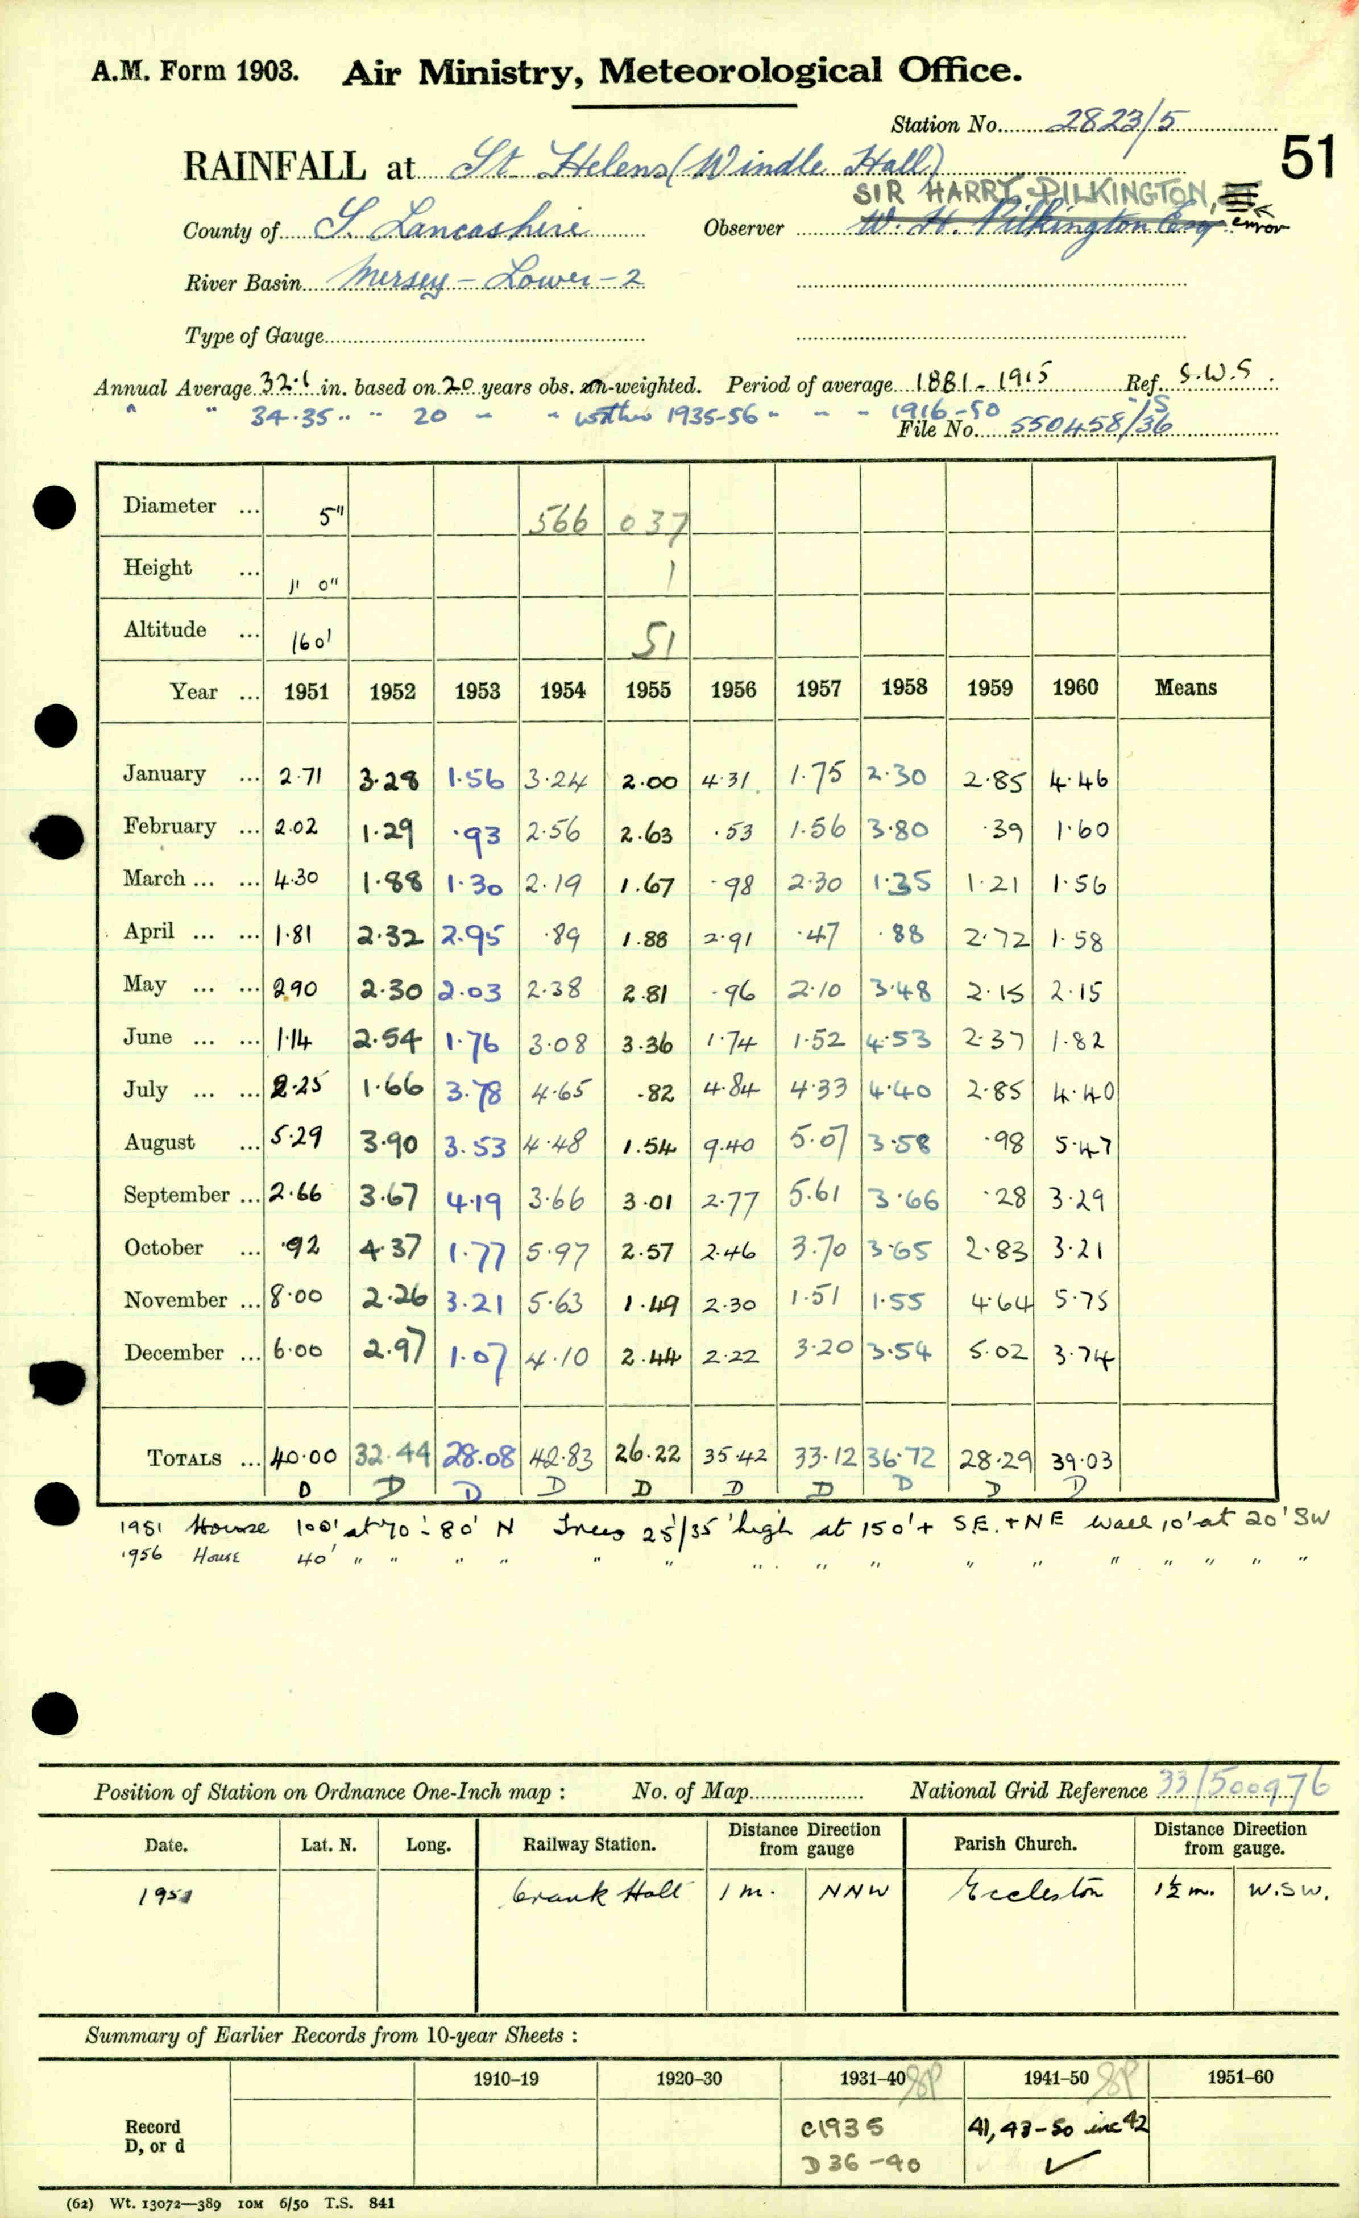 A.M. Form 1903. Air Ministry, Meteorological Office.
Station No. 2823/5
51
RAINFALL at St Helens (Windle Hall)
SIR HARRY PILKINGTON,
County of S. Lancashire Observer W. H. Pilkington Esq error
River Basin Mersey - Lower - 2
Type of Gauge
Annual Average 32.1 in. based on 20 years obs. un-weighted. Period of average 1881 - 1915 Ref. S.W.S.
" " 34.35 " " 20 " " 1935-56 " " " 1916-50
File No. 550458/36
Diameter ... 5" 566 037
Height ... 1' 0" 1
Altitude ... 160' 51
Year ... 1951 1952 1953 1954 1955 1956 1957 1958 1959 1960 Means
January ... 2.71 3.28 1.56 3.24 2.00 4.31 1.75 2.30 2.85 4.46
February ... 2.02 1.29 .93 2.56 2.63 .53 1.56 3.80 .39 1.60
March ... ... 4.30 1.88 1.30 2.19 1.67 .98 2.30 1.35 1.21 1.56
April ... ... 1.81 2.32 2.95 .89 1.88 2.91 .47 .88 2.72 1.58
May ... ... 2.90 2.30 2.03 2.38 2.81 .96 2.10 3.48 2.15 2.15
June ... ... 1.14 2.54 1.76 3.08 3.36 1.74 1.52 4.53 2.37 1.82
July ... ... 2.25 1.66 3.78 4.65 .82 4.84 4.33 4.40 2.85 4.40
August ... 5.29 3.90 3.53 4.48 1.54 9.40 5.07 3.58 .98 5.47
September ... 2.66 3.67 4.19 3.66 3.01 2.77 5.61 3.66 .28 3.29
October ... .92 4.37 1.77 5.97 2.57 2.46 3.70 3.65 2.83 3.21
November ... 8.00 2.26 3.21 5.63 1.49 2.30 1.51 1.55 4.64 5.75
December ... 6.00 2.97 1.07 4.10 2.44 2.22 3.20 3.54 5.02 3.74
TOTALS ... 40.00 32.44 28.08 42.83 26.22 35.42 33.12 36.72 28.29 39.03
D D D D D D D D D D
1951 House 100' at 70'-80' N Trees 25'/35' high at 150'+ S.E. + NE Wall 10' at 20' SW
1956 House 40' " " " " " " " " " " " " " " " "
Position of Station on Ordnance One-Inch map : No. of Map National Grid Reference 33/500976
Date. Lat. N. Long. Railway Station. Distance from gauge Direction Parish Church. Distance from gauge. Direction
1951 Crank Halt 1 m. NNW Eccleston 1½ m. W.SW.
Summary of Earlier Records from 10-year Sheets :
1910–19 1920–30 1931–40 1941–50 1951–60
Record D, or d
C1935 41, 43-50 inc 42
D 36-40 ✓
(62) Wt. 13072—389 10M 6/50 T.S. 841